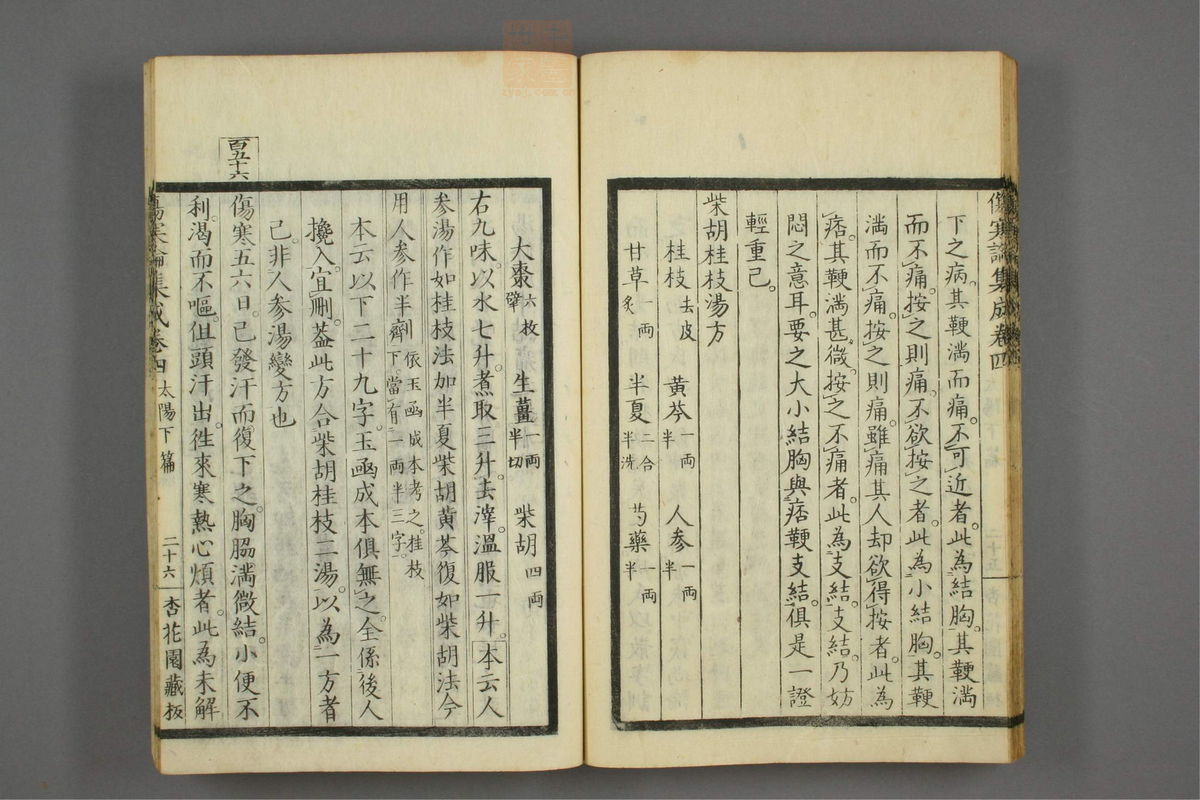 傷寒論集成卷四
下之病。其鞕滿而痛。不可近者。此為結胸。其鞕滿
而不痛。按之則痛。不欲按之者。此為小結胸。其鞕
滿而不痛。按之則痛。雖痛其人却欲得按者。此為
痞。其鞕滿甚微。按之不痛者。此為支結。支結乃妨
悶之意耳。要之大小結胸與痞鞕支結。俱是一證
輕重已。
柴胡桂枝湯方
桂枝去皮 黃芩一兩半 人參一兩半
甘草一兩炙 半夏二合半洗 芍藥一兩半
大棗六枚擘 生薑一兩半切 柴胡四兩
右九味。以水七升。煮取三升。去滓。溫服一升。本云人
參湯作如桂枝法加半夏柴胡黃芩復如柴胡法今
用人參作半劑依玉函成本考之。桂枝下。當有一兩半三字。
本云以下二十九字。玉函成本俱無之。全係後人
攙入。宜刪。蓋此方合柴胡桂枝二湯。以為一方者
已。非人參湯變方也
百五十六
傷寒五六日。已發汗而復下之。胸脇滿微結。小便不
利。渴而不嘔。但頭汗出。往來寒熱心煩者。此為未解
傷寒論集成卷四 太陽下篇 二十六 杏花園藏板